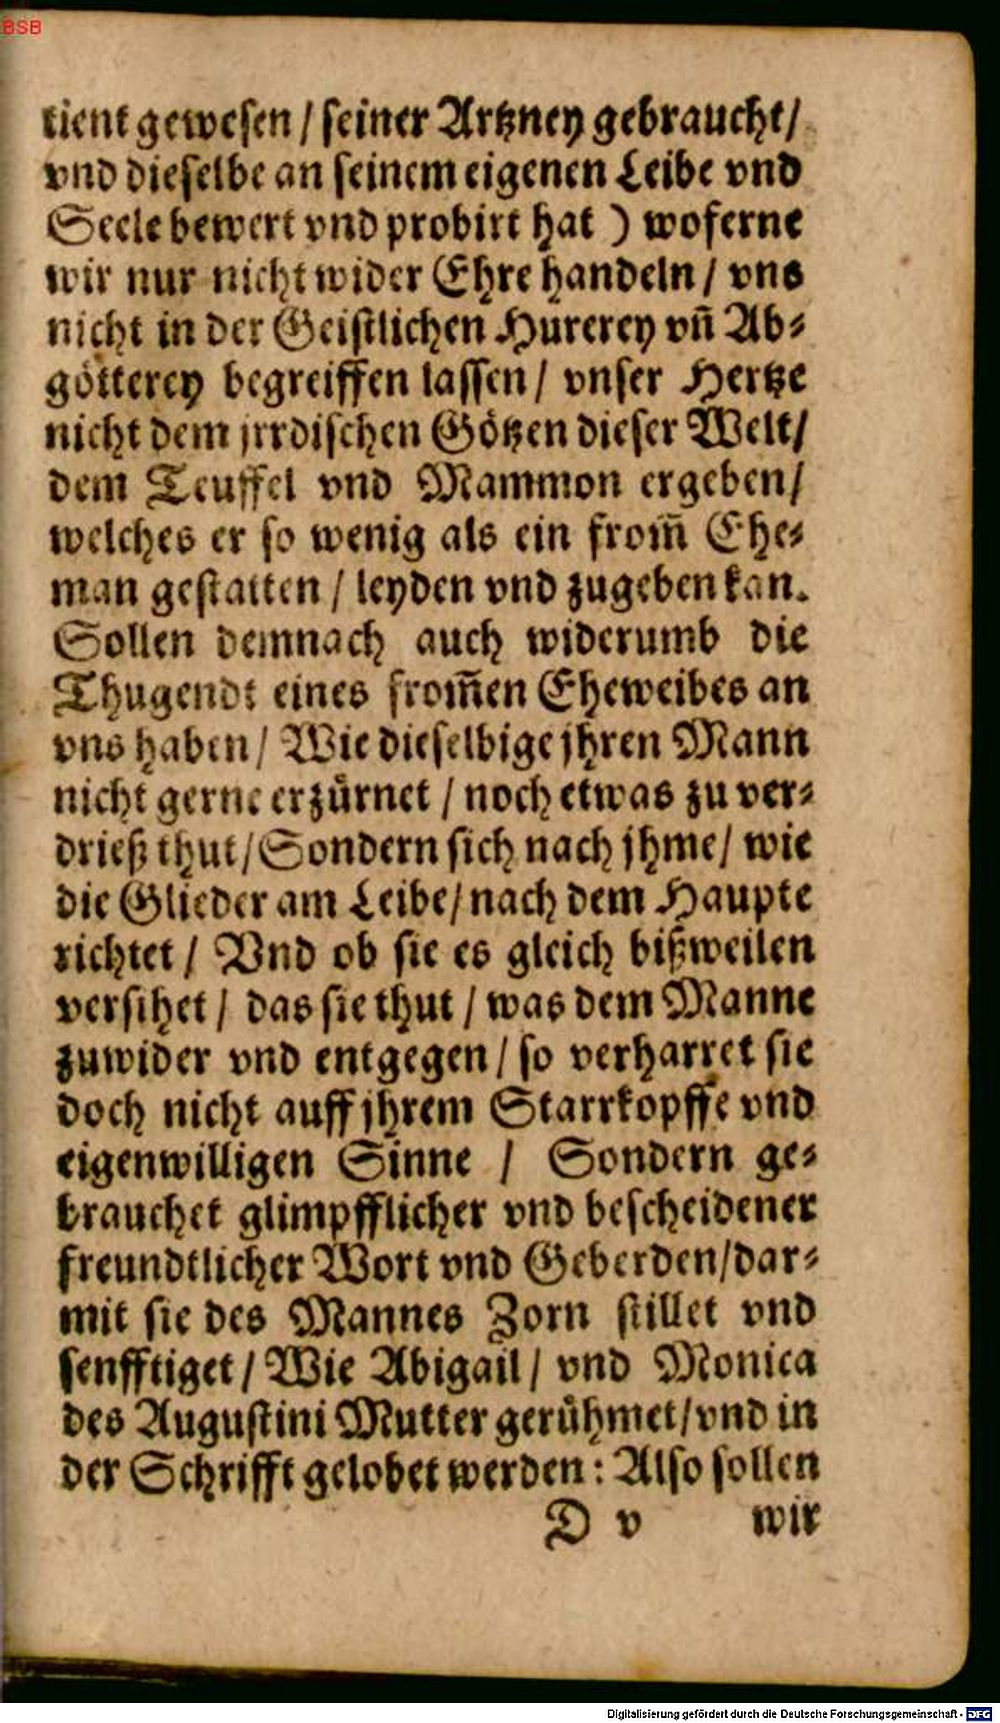 BSB
tient gewesen / seiner Artzney gebraucht /
vnd dieselbe an seinem eigenen Leibe vnd
Seele bewert vnd probirt hat ) woferne
wir nur nicht wider Ehre handeln / vns
nicht in der Geistlichen Hurerey vñ Ab-
götterey begreiffen lassen / vnser Hertze
nicht dem jrrdischen Götzen dieser Welt /
dem Teuffel vnd Mammon ergeben /
welches er so wenig als ein from̃ Ehe-
man gestatten / leyden vnd zugeben kan.
Sollen demnach auch widerumb die
Thugendt eines from̃en Eheweibes an
vns haben / Wie dieselbige jhren Mann
nicht gerne erzürnet / noch etwas zu ver-
drieß thut / Sondern sich nach jhme / wie
die Glieder am Leibe / nach dem Haupte
richtet / Vnd ob sie es gleich bißweilen
versihet / das sie thut / was dem Manne
zuwider vnd entgegen / so verharret sie
doch nicht auff jhrem Starrkopffe vnd
eigenwilligen Sinne / Sondern ge-
brauchet glimpfflicher vnd bescheidener
freundtlicher Wort vnd Geberden / dar-
mit sie des Mannes Zorn stillet vnd
senfftiget / Wie Abigail / vnd Monica
des Augustini Mutter gerühmet / vnd in
der Schrifft gelobet werden : Also sollen
D v wir
Digitalisierung gefördert durch die Deutsche Forschungsgemeinschaft - DFG